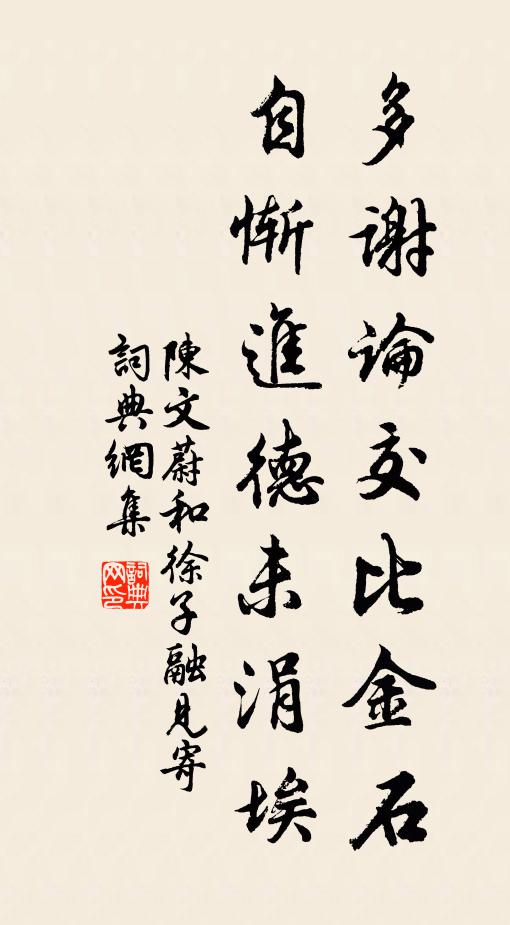 多謝論交比金石
自慚進德未涓埃
陳文蔚和徐子融見寄
詞典網集
詞典网印